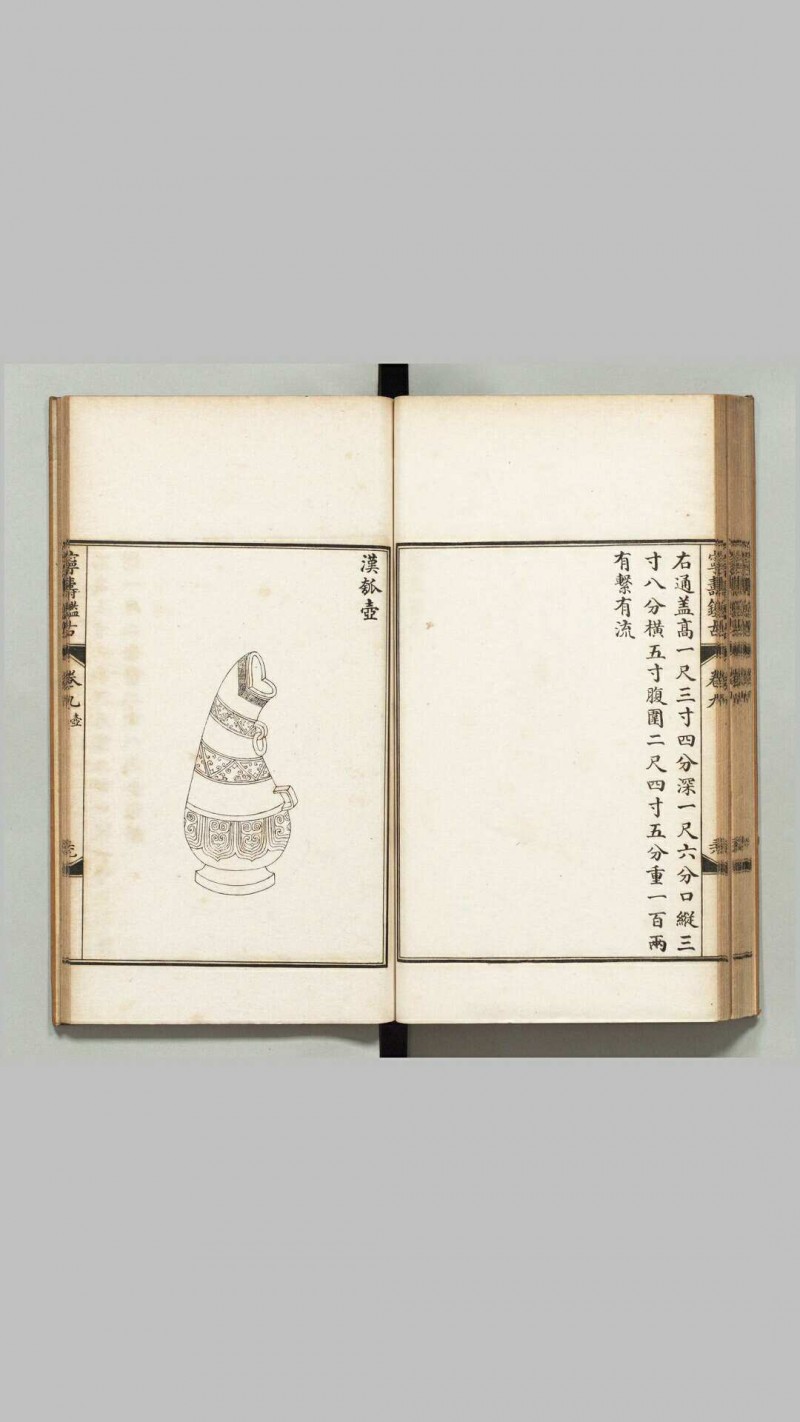 右通盖高一尺三寸四分深一尺六分口縱三
寸八分橫五寸腹圍二尺四寸五分重一百兩
有繫有流
漢瓠壺
寧壽鑑古
卷九
壺